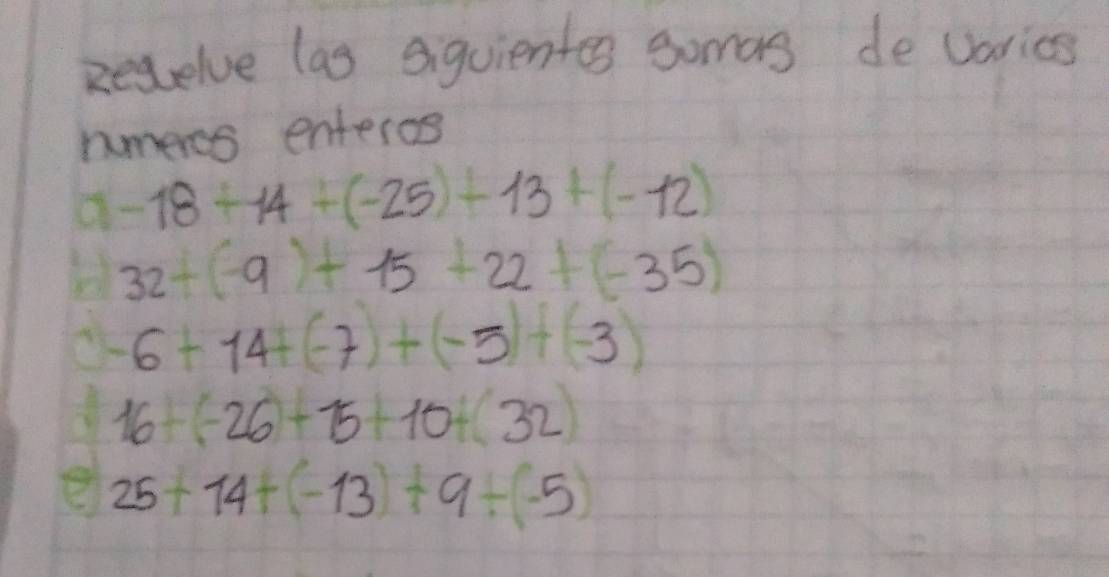 Resuelve las siguientes sumas de varios
numeros enteros
a) -18 + 14 + (-25) + 13 + (-12)
b) 32 + (-9) + 15 + 22 + (-35)
c) -6 + 14 + (-7) + (-5) + (-3)
d) 16 + (-26) + 15 + 10 + (32)
e) 25 + 14 + (-13) + 9 + (-5)